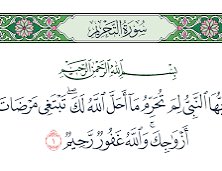 سُورَةُ التَّحْرِيمِ
بِسْمِ اللَّهِ الرَّحْمَٰنِ الرَّحِيمِ
النَّبِيُّ لِمَ تُحَرِّمُ مَا أَحَلَّ اللَّهُ لَكَ ۖ تَبْتَغِي مَرْضَاتَ
أَزْوَاجِكَ ۚ وَاللَّهُ غَفُورٌ رَحِيمٌ ١